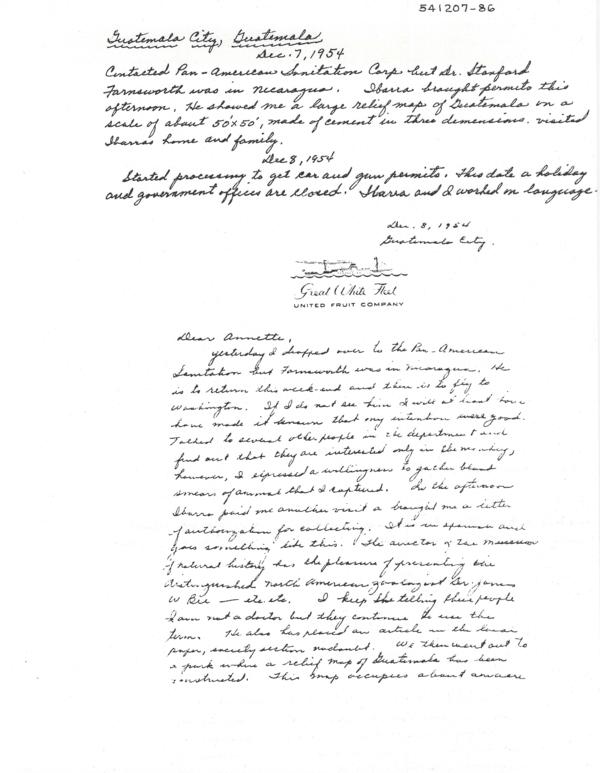 541207-86
Guatemala City, Guatemala
Dec. 7, 1954
Contacted Pan-American Sanitation Corp but Dr. Stanford
Farnsworth was in Nicaragua. Ibarra brought permits this
afternoon. He showed me a large relief map of Guatemala on a
scale of about 50'x50', made of cement in three demensions. visited
Ibarras home and family.
Dec 8, 1954
Started processing to get car and gun permits. This date a holiday
and government offices are closed. Ibarra and I worked on language.
Dec. 8, 1954
Guatemala City.
Great White Fleet
UNITED FRUIT COMPANY
Dear Annette,
yesterday I dropped over to the Pan-American
Sanitation but Farnsworth was in Nicaragua. He
is to return this week-end and then is to fly to
Washington. If I do not see him I will at least
have made it known that my intention were good.
Talked to several other people in the department and
find out that they are interested only in the monkey,
however, I expressed a willingness to gather blood
smears of animal that I captured. In the afternoon
Ibarra paid me another visit a brought me a letter
of authorization for collecting. It is in spanish and
goes something like this. The director of the museum
of natural history has the pleasure of presenting the
distinguished North American zoologist Dr. James
W Bee — etc. etc. I keep telling these people
I am not a doctor but they continue to use the
term. He also has placed an article in the
paper, society section no doubt. We then went out to
a park where a relief map of Guatemala has been
constructed. This map occupies about a